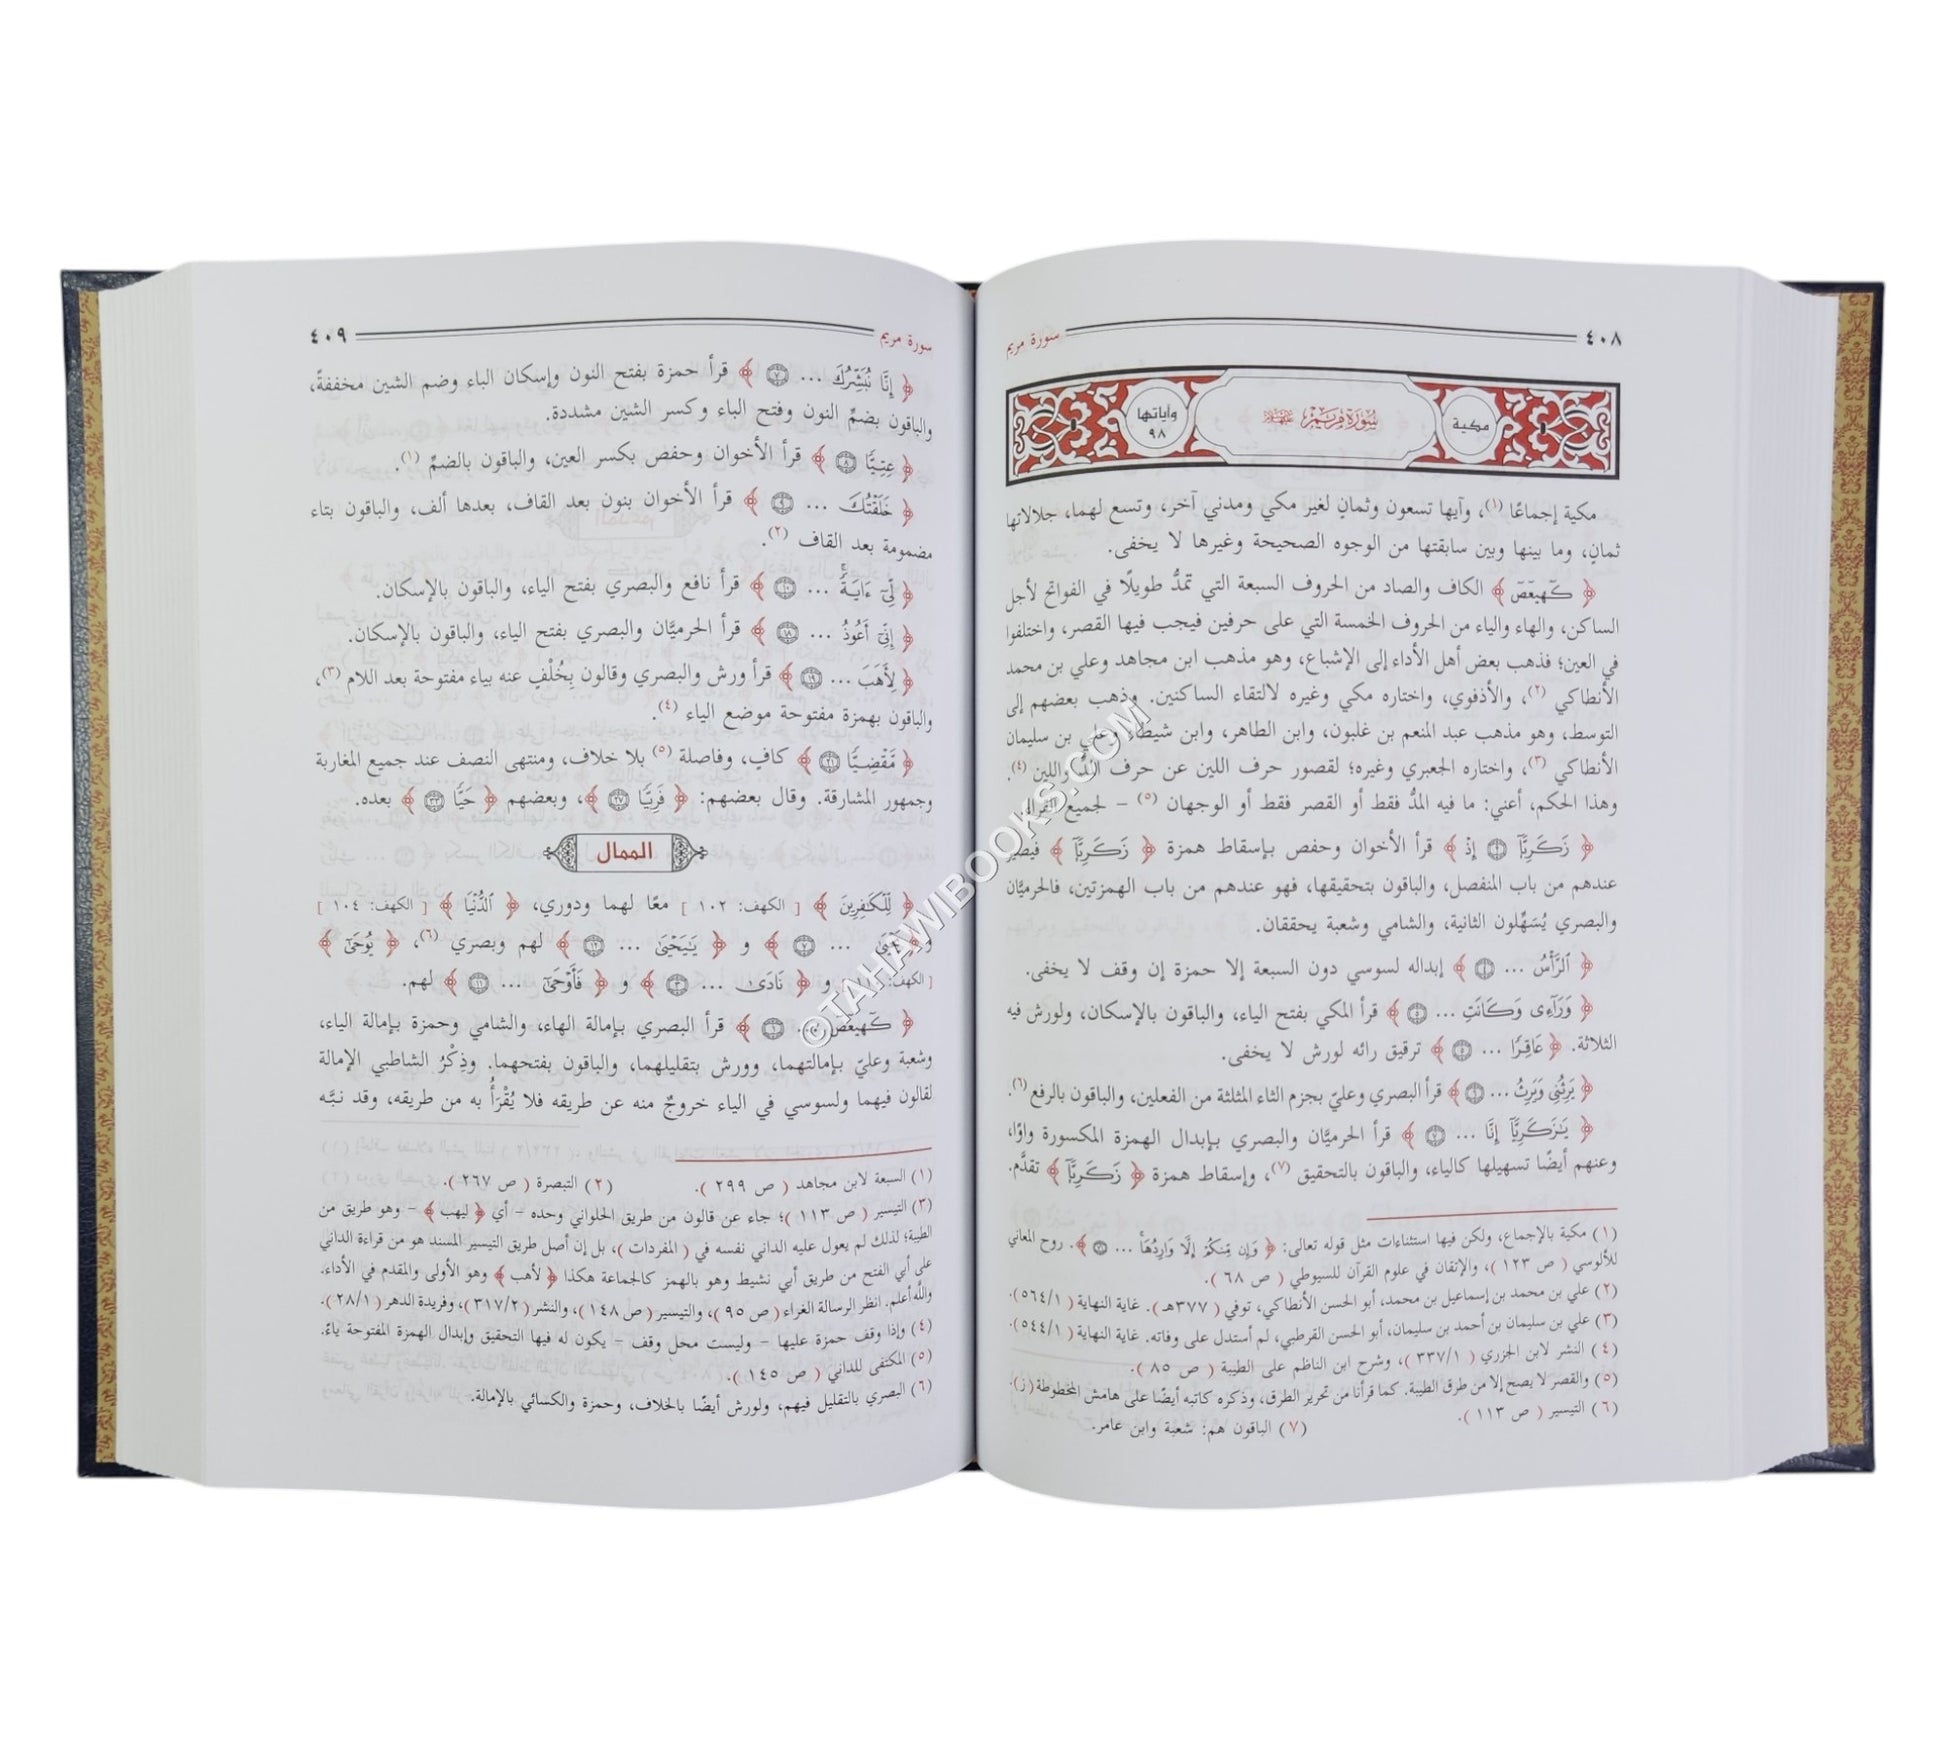 ٤٠٨ سورة مريم
مكية سورة مريم عليها السلام وآياتها ٩٨
مكية إجماعًا (١)، وآيها تسعون وثمانٍ لغير مكي ومدني آخر، وتسع لهما، جلالاتها
ثمانٍ، وما بينها وبين سابقتها من الوجوه الصحيحة وغيرها لا يخفى.
﴿ كٓهيعٓصٓ ﴾ الكاف والصاد من الحروف السبعة التي تمدُّ طويلًا في الفواتح لأجل
الساكن، والهاء والياء من الحروف الخمسة التي على حرفين فيجب فيها القصر، واختلفوا
في العين؛ فذهب بعض أهل الأداء إلى الإشباع، وهو مذهب ابن مجاهد وعلي بن محمد
الأنطاكي (٢)، والأذفوي، واختاره مكي وغيره لالتقاء الساكنين. وذهب بعضهم إلى
التوسط، وهو مذهب عبد المنعم بن غلبون، وابن الطاهر، وابن شيطا، وعلي بن سليمان
الأنطاكي (٣)، واختاره الجعبري وغيره؛ لقصور حرف اللين عن حرف المدِّ واللين (٤).
وهذا الحكم، أعني: ما فيه المدُّ فقط أو القصر فقط أو الوجهان (٥) – لجميع القراء.
﴿ زَكَرِيَّآ ۝٢ إِذْ ﴾ قرأ الأخوان وحفص بإسقاط همزة ﴿ زَكَرِيَّآ ﴾ فيصير
عندهم من باب المنفصل، والباقون بتحقيقها، فهو عندهم من باب الهمزتين، فالحرميَّان
والبصري يُسَهِّلون الثانية، والشامي وشعبة يحققان.
﴿ ٱلرَّأْسُ ... ۝٤ ﴾ إبداله لسوسي دون السبعة إلا حمزة إن وقف لا يخفى.
﴿ وَرَآءِى وَكَانَتِ ... ۝٥ ﴾ قرأ المكي بفتح الياء، والباقون بالإسكان، ولورش فيه
الثلاثة. ﴿ عَاقِرًا ... ۝٥ ﴾ ترقيق رائه لورش لا يخفى.
﴿ يَرِثُنِى وَيَرِثُ ... ۝٦ ﴾ قرأ البصري وعليّ بجزم الثاء المثلثة من الفعلين، والباقون بالرفع (٦).
﴿ يَٰزَكَرِيَّآ إِنَّا ... ۝٧ ﴾ قرأ الحرميَّان والبصري بإبدال الهمزة المكسورة واوًا،
وعنهم أيضًا تسهيلها كالياء، والباقون بالتحقيق (٧)، وإسقاط همزة ﴿ زَكَرِيَّآ ﴾ تقدَّم.
(١) مكية بالإجماع، ولكن فيها استثناءات مثل قوله تعالى: ﴿ وَإِن مِّنكُمْ إِلَّا وَارِدُهَا ... ۝٧١ ﴾. روح المعاني
للألوسي ( ص ١٢٣ )، والإتقان في علوم القرآن للسيوطي ( ص ٦٨ ).
(٢) علي بن محمد بن إسماعيل بن محمد، أبو الحسن الأنطاكي، توفي ( ٣٧٧هـ ). غاية النهاية ( ٥٦٤/١ ).
(٣) علي بن سليمان بن أحمد بن سليمان، أبو الحسن القرطبي، لم أستدل على وفاته. غاية النهاية ( ٥٤٤/١ ).
(٤) النشر لابن الجزري ( ٣٣٧/١ )، وشرح ابن الناظم على الطيبة ( ص ٨٥ ).
(٥) والقصر لا يصح إلا من طرق الطيبة. كما قرأنا من تحرير الطرق، وذكره كاتبه أيضًا على هامش المخطوطة (ز).
(٦) التيسير ( ص ١١٣ ). (٧) الباقون هم: شعبة وابن عامر.
سورة مريم ٤٠٩
﴿ إِنَّا نُبَشِّرُكَ ... ۝٧ ﴾ قرأ حمزة بفتح النون وإسكان الباء وضم الشين مخففةً،
والباقون بضمِّ النون وفتح الباء وكسر الشين مشددة.
﴿ عِتِيًّا ۝٨ ﴾ قرأ الأخوان وحفص بكسر العين، والباقون بالضمِّ (١).
﴿ خَلَقْتُكَ ... ۝٩ ﴾ قرأ الأخوان بنون بعد القاف، بعدها ألف، والباقون بتاء
مضمومة بعد القاف (٢).
﴿ لِّىٓ ءَايَةً ... ۝١٠ ﴾ قرأ نافع والبصري بفتح الياء، والباقون بالإسكان.
﴿ إِنِّىٓ أَعُوذُ ... ۝١٨ ﴾ قرأ الحرميَّان والبصري بفتح الياء، والباقون بالإسكان.
﴿ لِأَهَبَ ... ۝١٩ ﴾ قرأ ورش والبصري وقالون بِخُلْفٍ عنه بياء مفتوحة بعد اللام (٣)،
والباقون بهمزة مفتوحة موضع الياء (٤).
﴿ مَّقْضِيًّا ۝٢١ ﴾ كافٍ، وفاصلة (٥) بلا خلاف، ومنتهى النصف عند جميع المغاربة
وجمهور المشارقة. وقال بعضهم: ﴿ فَرِيًّا ۝٢٧ ﴾، وبعضهم ﴿ حَيًّا ۝٣٣ ﴾ بعده.
الممال
﴿ لِلْكَٰفِرِينَ ﴾ [ الكهف: ١٠٢ ] معًا لهما ودوري، ﴿ ٱلدُّنْيَا ﴾ [ الكهف: ١٠٤ ]
و ﴿ يَحْيَىٰ ... ۝٧ ﴾ و ﴿ يَٰيَحْيَىٰ ... ۝١٢ ﴾ لهم وبصري (٦)، ﴿ يُوحَىٰٓ ﴾
[ الكهف: ١١٠ ] و ﴿ نَادَىٰ ... ۝٣ ﴾ و ﴿ فَأَوْحَىٰٓ ... ۝١١ ﴾ لهم.
﴿ كٓهيعٓصٓ ۝١ ﴾ قرأ البصري بإمالة الهاء، والشامي وحمزة بإمالة الياء،
وشعبة وعليّ بإمالتهما، وورش بتقليلهما، والباقون بفتحهما. وذِكْرُ الشاطبي الإمالة
لقالون فيهما ولسوسي في الياء خروجٌ منه عن طريقه فلا يُقْرَأُ به من طريقه، وقد نبَّه
(١) السبعة لابن مجاهد ( ص ٢٩٩ ). (٢) التبصرة ( ص ٢٦٧ ).
(٣) التيسير ( ص ١١٣ )؛ جاء عن قالون من طريق الحلواني وحده – أي ﴿ ليهب ﴾ – وهو طريق من
الطيبة؛ لذلك لم يعول عليه الداني نفسه في ( المفردات )، بل إن أصل طريق التيسير المسند هو من قراءة الداني
على أبي الفتح من طريق أبي نشيط وهو بالهمز كالجماعة هكذا ﴿ لأهب ﴾ وهو الأولى والمقدم في الأداء.
واللَّه أعلم. انظر الرسالة الغراء ( ص ٩٥ )، والتيسير ( ص ١٤٨ )، والنشر ( ٣١٧/٢ )، وفريدة الدهر ( ٢٨/١ ).
(٤) وإذا وقف حمزة عليها – وليست محل وقف – يكون له فيها التحقيق وإبدال الهمزة المفتوحة ياءً.
(٥) المكتفى للداني ( ص ١٤٥ ).
(٦) البصري بالتقليل فيهم، ولورش أيضًا بالخلاف، وحمزة والكسائي بالإمالة.
©TAHAWIBOOKS.COM